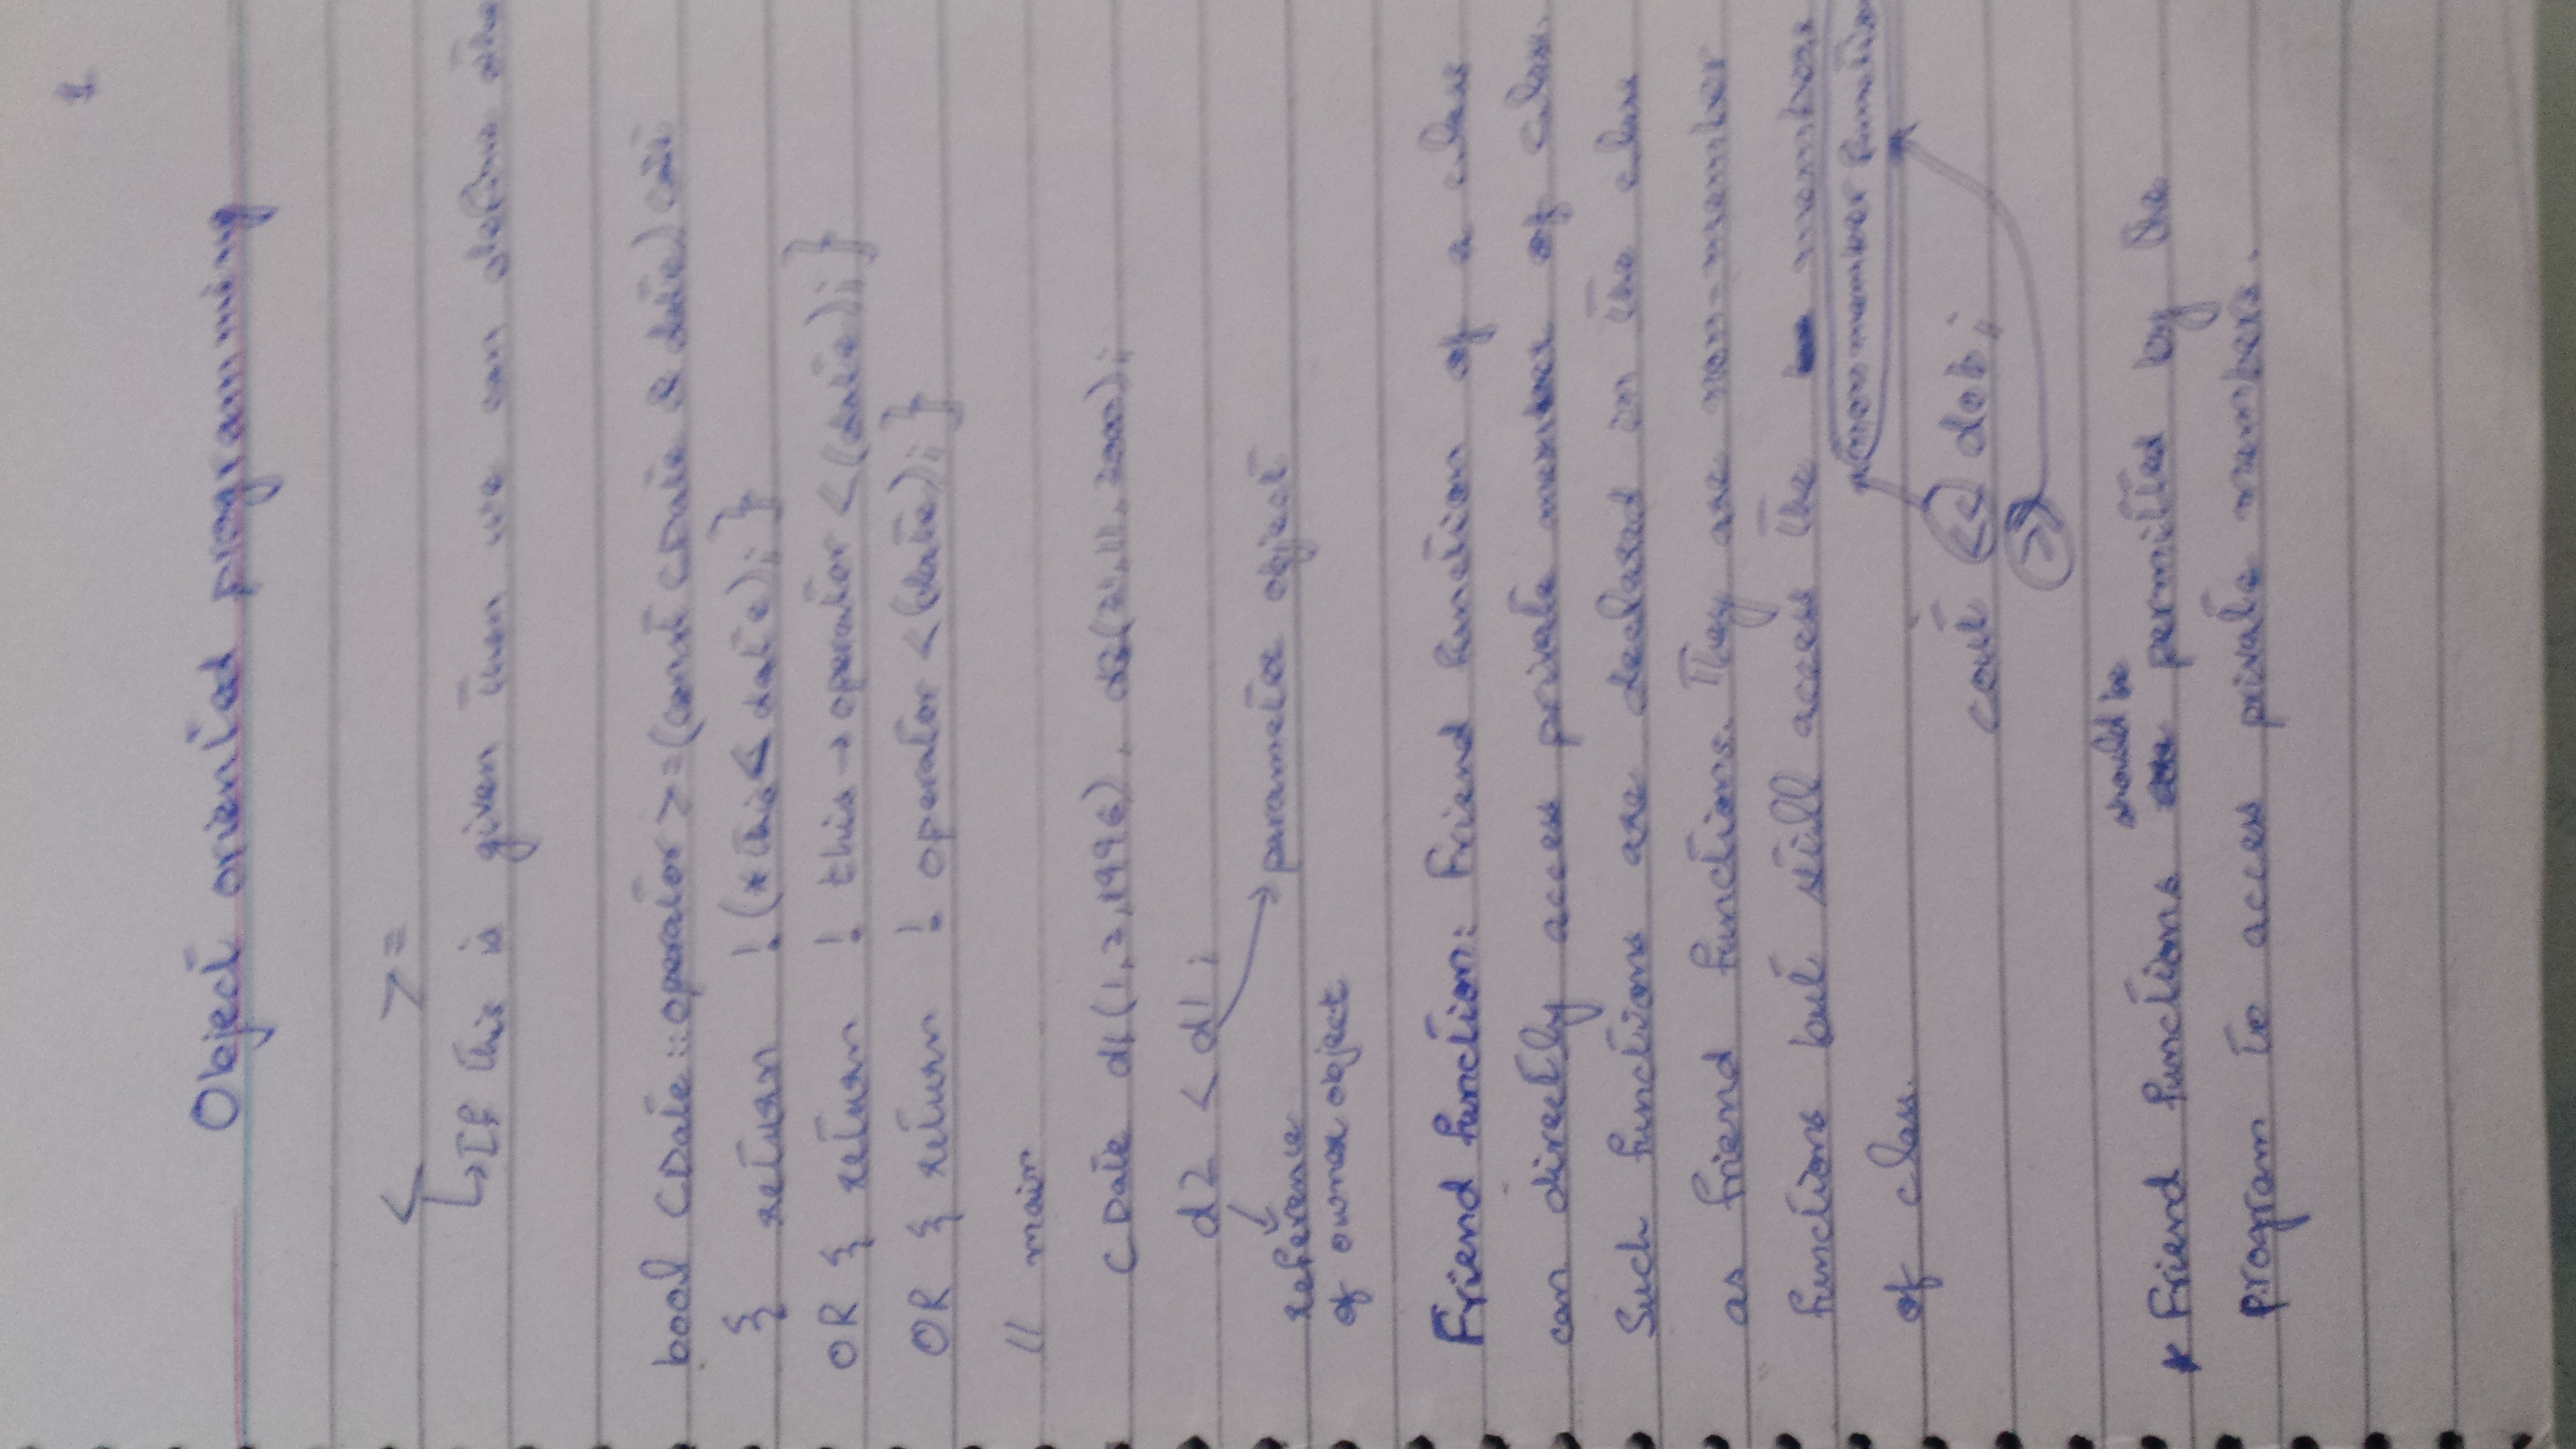 1
Object oriented programming
< >=
↳If this is given then we can define
bool CDate::operator>=(const CDate & date)
{ return !(*this< date); }
OR { return ! this→operator<(date); }
OR { return ! operator<(date); }
// main
CDate d1(1,2,1996), d2(21,11,2000);
d2 < d1;
parameter object
reference
of owner object
Friend function: Friend function of a class
can directly access private member of class.
Such functions are declared in the class
as friend functions. They are non-member
functions but still access the members
non member function
of class.
cout << dob;
>>
should be
* Friend functions permitted by the
program to access private members.